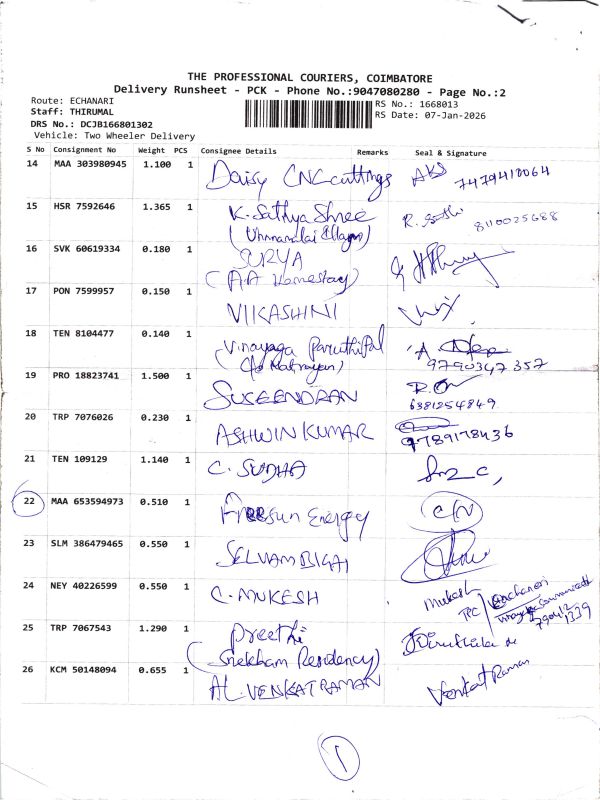 THE PROFESSIONAL COURIERS, COIMBATORE
Delivery Runsheet - PCK - Phone No.:9047080280 - Page No.:2
Route: ECHANARI
RS No.: 1668013
Staff: THIRUMAL
RS Date: 07-Jan-2026
DRS No.: DCJB166801302
Vehicle: Two Wheeler Delivery
S No Consignment No Weight PCS Consignee Details Remarks Seal & Signature
14 MAA 303980945 1.100 1 Daisy CNC cuttings
7479410064
15 HSR 7592646 1.365 1 K. Sathya Shree
8110025688
16 SVK 60619334 0.180 1 SURYA
(AA Homestay)
17 PON 7599957 0.150 1 VIKASHINI
18 TEN 8104477 0.140 1 Vinayaga Paruthi Pal
9790347357
19 PRO 18823741 1.500 1 SUSEENDRAN
6381254849
20 TRP 7076026 0.230 1 ASHWIN KUMAR
9789178436
21 TEN 109129 1.140 1 C. SUDHA
22 MAA 653594973 0.510 1 Freesun Energy C/N
23 SLM 386479465 0.550 1 SELVAMBIGAI
24 NEY 40226599 0.550 1 C. MUKESH Mukesh
TPC
25 TRP 7067543 1.290 1 Preethi
(Snekham Residency)
26 KCM 50148094 0.655 1 AL. VENKATRAMAN Venkat Raman
1